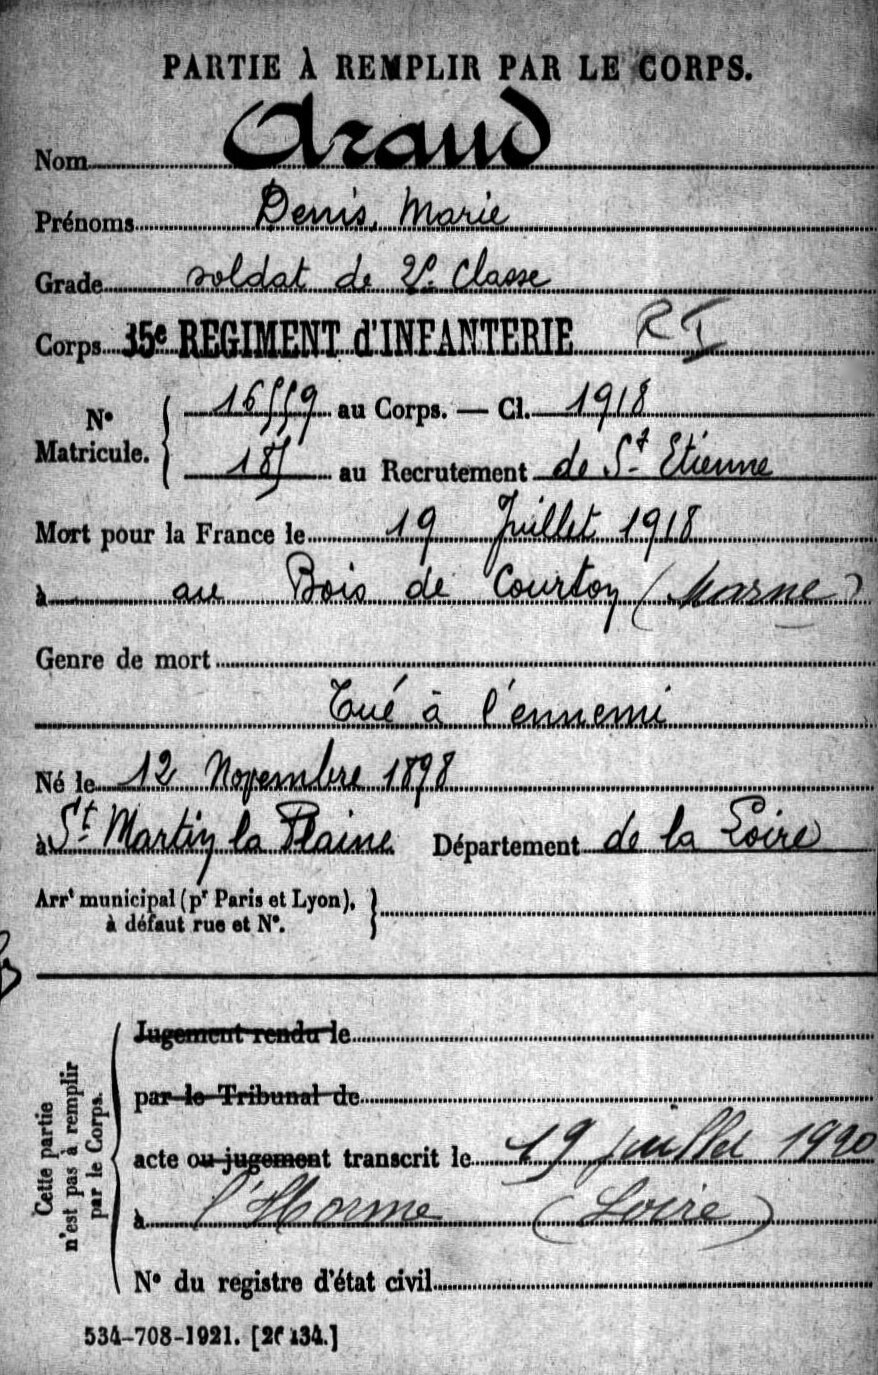 PARTIE À REMPLIR PAR LE CORPS.
Nom Araud
Prénoms Denis, Marie
Grade soldat de 2e Classe
Corps 35e REGIMENT d'INFANTERIE RI
N° Matricule. 16559 au Corps. — Cl. 1918
185 au Recrutement de St Etienne
Mort pour la France le 19 Juillet 1918
à au Bois de Courton (Marne)
Genre de mort
Tué à l'ennemi
Né le 12 Novembre 1898
à St Martin la Plaine Département de la Loire
Arrt municipal (pr Paris et Lyon),
à défaut rue et N°.
Cette partie
n'est pas à remplir
par le Corps.
Jugement rendu le
par le Tribunal de
acte ou jugement transcrit le 19 juillet 1920
à l'Horme (Loire)
N° du registre d'état civil
534-708-1921.